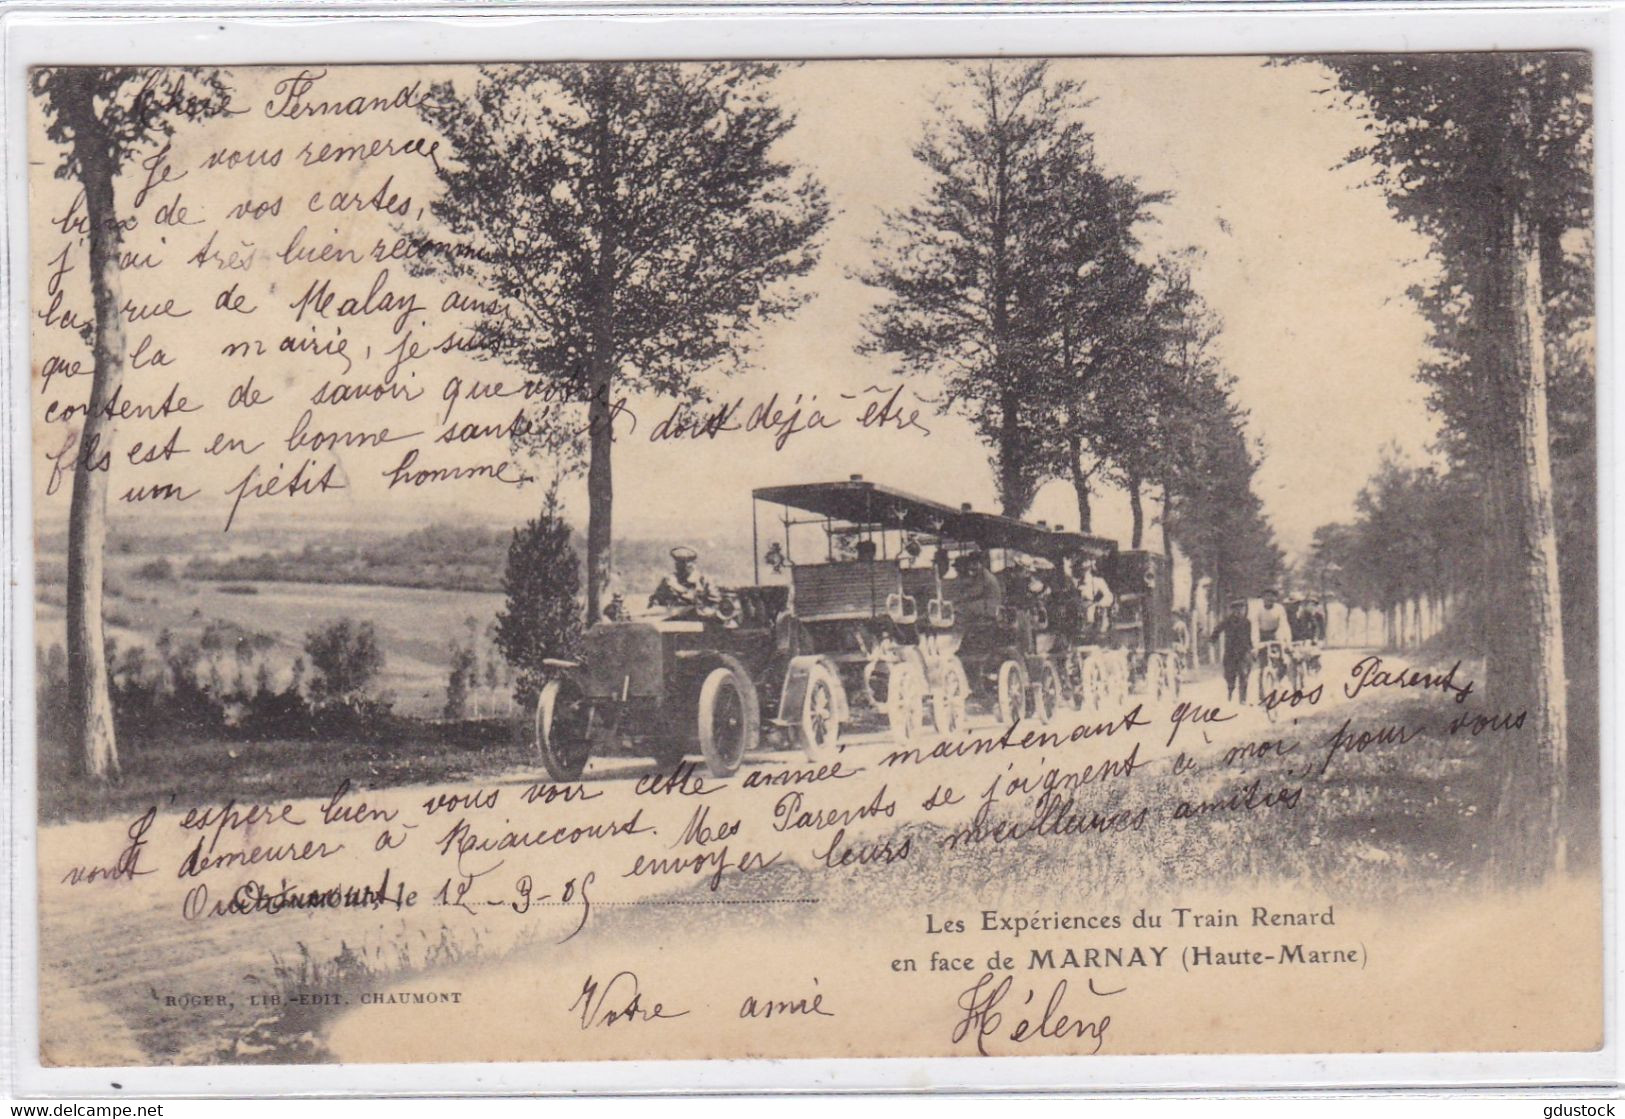 Chère Fernande
Je vous remercie
bien de vos cartes,
j'ai très bien reconnu
la rue de Malay ainsi
que la mairie, je suis
contente de savoir que votre
fils est en bonne santé, il doit déjà être
un petit homme.
J'espère bien vous voir cette année maintenant que vos Parents
vont demeurer à Riaucourt. Mes Parents se joignent à moi pour vous
envoyer leurs meilleures amitiés
Chaumont, le 12-9-05
Les Expériences du Train Renard
en face de MARNAY (Haute-Marne)
ROGER, LIB.-EDIT. CHAUMONT
Votre amie Hélène
delcampe.net
gdustock